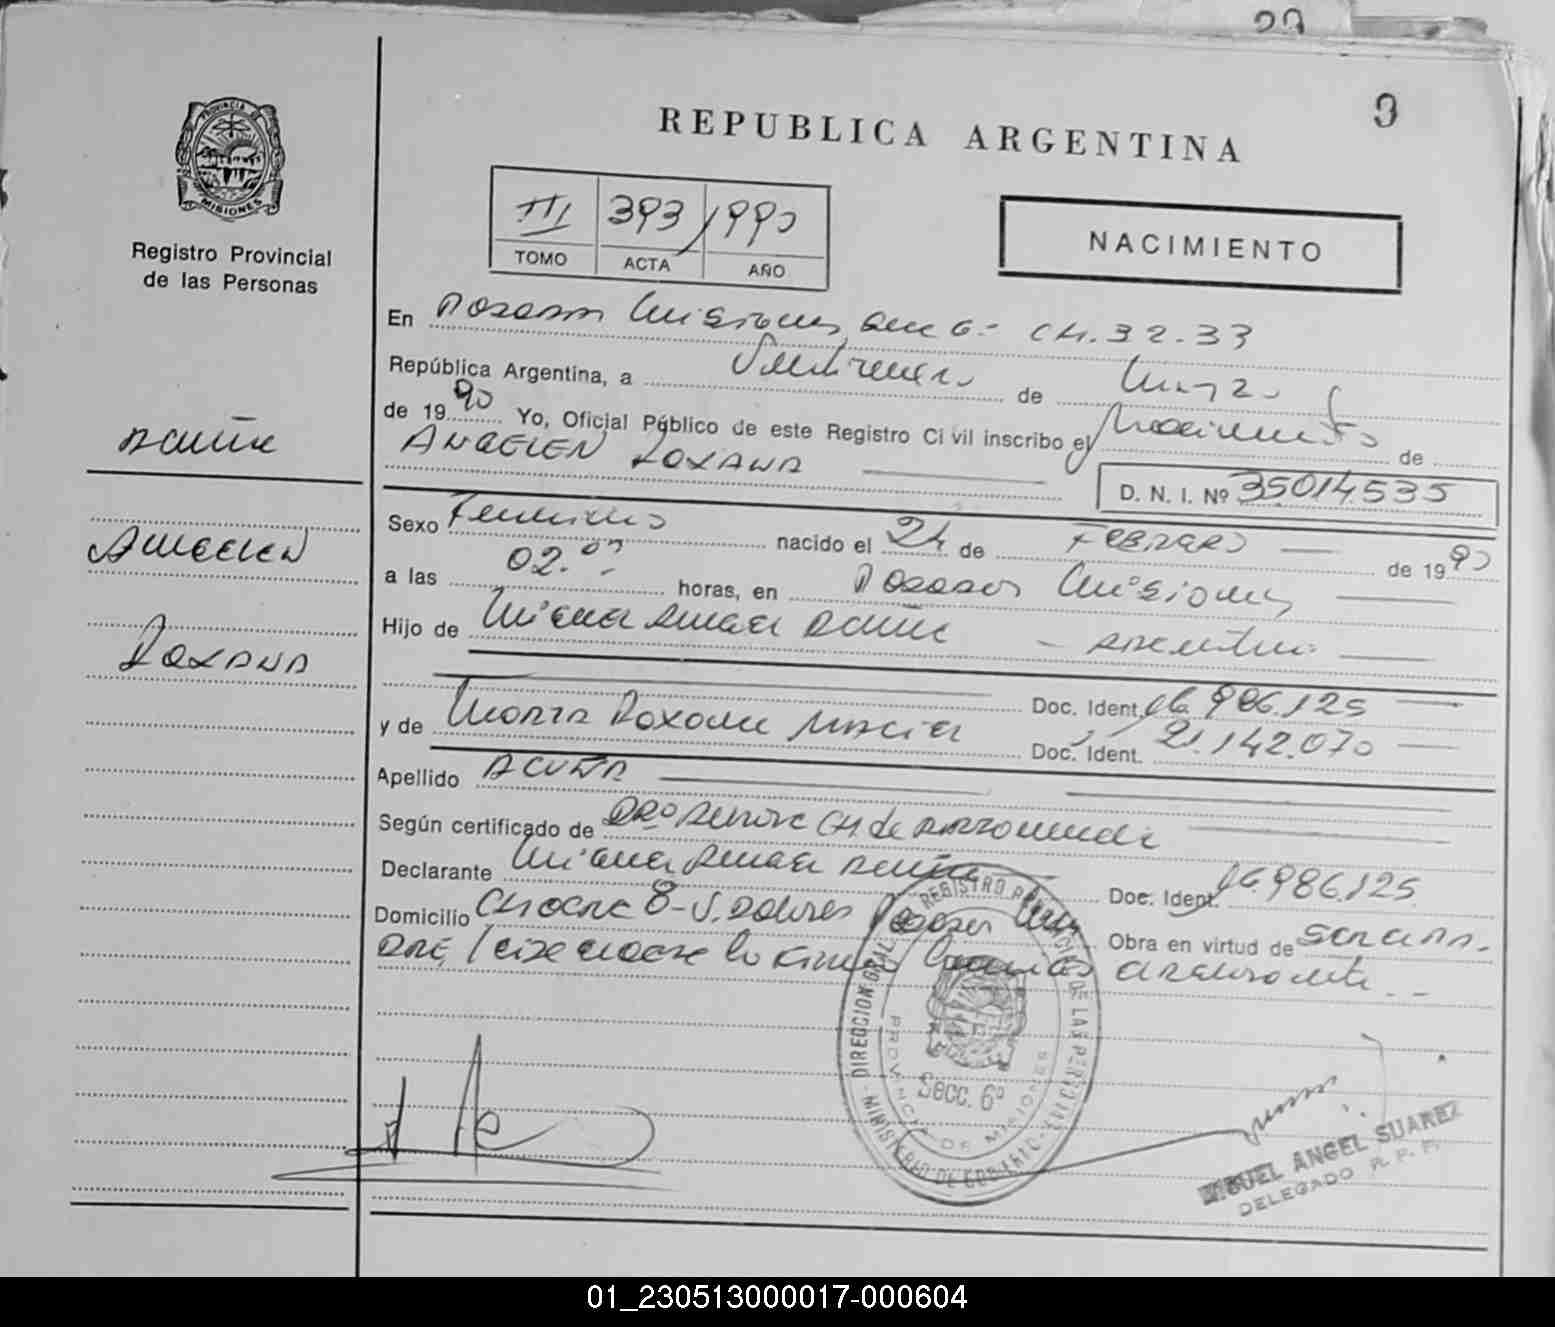 3
REPUBLICA ARGENTINA
PROVINCIA DE
MISIONES
Registro Provincial
de las Personas
III 393 1990
TOMO ACTA AÑO
NACIMIENTO
En Posadas Misiones, Secc 6º CH.32.33
República Argentina, a Veintiuno de Marzo
de 1990 Yo, Oficial Público de este Registro Civil inscribo el Nacimiento de
ANGELEN ROXANA
D. N. I. Nº 35014535
Acuña
Angelen
Roxana
Sexo Femenino nacido el 24 de FEBRERO de 1990
a las 02.00 horas, en Posadas Misiones
Hijo de Miguel Angel Acuña - Argentino
Doc. Ident. 16.986.125
y de Maria Roxana Maciel
Doc. Ident. 21.142.070
Apellido ACUÑA
Según certificado de CH de
Declarante Miguel Angel Acuña Doc. Ident. 16.986.125
Domicilio Chacra 8 - V. Dolores Posadas Obra en virtud de
lo firma
MINISTERIO DE GOBIERNO - DIRECCION GRAL. REGISTRO PROVINCIAL DE LAS PERSONAS
PROVINCIA DE MISIONES
Secc. 6º
MIGUEL ANGEL SUAREZ
DELEGADO R. P. P.
01_230513000017-000604